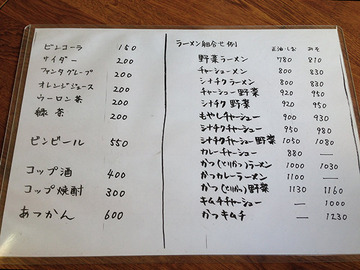 ビンコーラ 150
サイダー 200
ファンタグレープ 200
オレンジジュース 200
ウーロン茶 200
緑茶 200
ビンビール 550
コップ酒 400
コップ焼酎 300
あつかん 600
ラーメン組合せ例 正油・しお みそ
野菜ラーメン 780 810
チャーシューメン 800 830
シナチクラーメン 800 830
チャーシュー野菜 920 950
シナチク野菜 920 950
もやしチャーシュー 900 930
シナチクチャーシュー 950 980
シナチクチャーシュー野菜 1050 1080
カレーチャーシュー 880 —
かつ(とりかつ)ラーメン 1000 1030
かつカレーラーメン 1100 —
かつ(とりかつ)野菜 1130 1160
キムチチャーシュー — 1000
かつキムチ — 1230